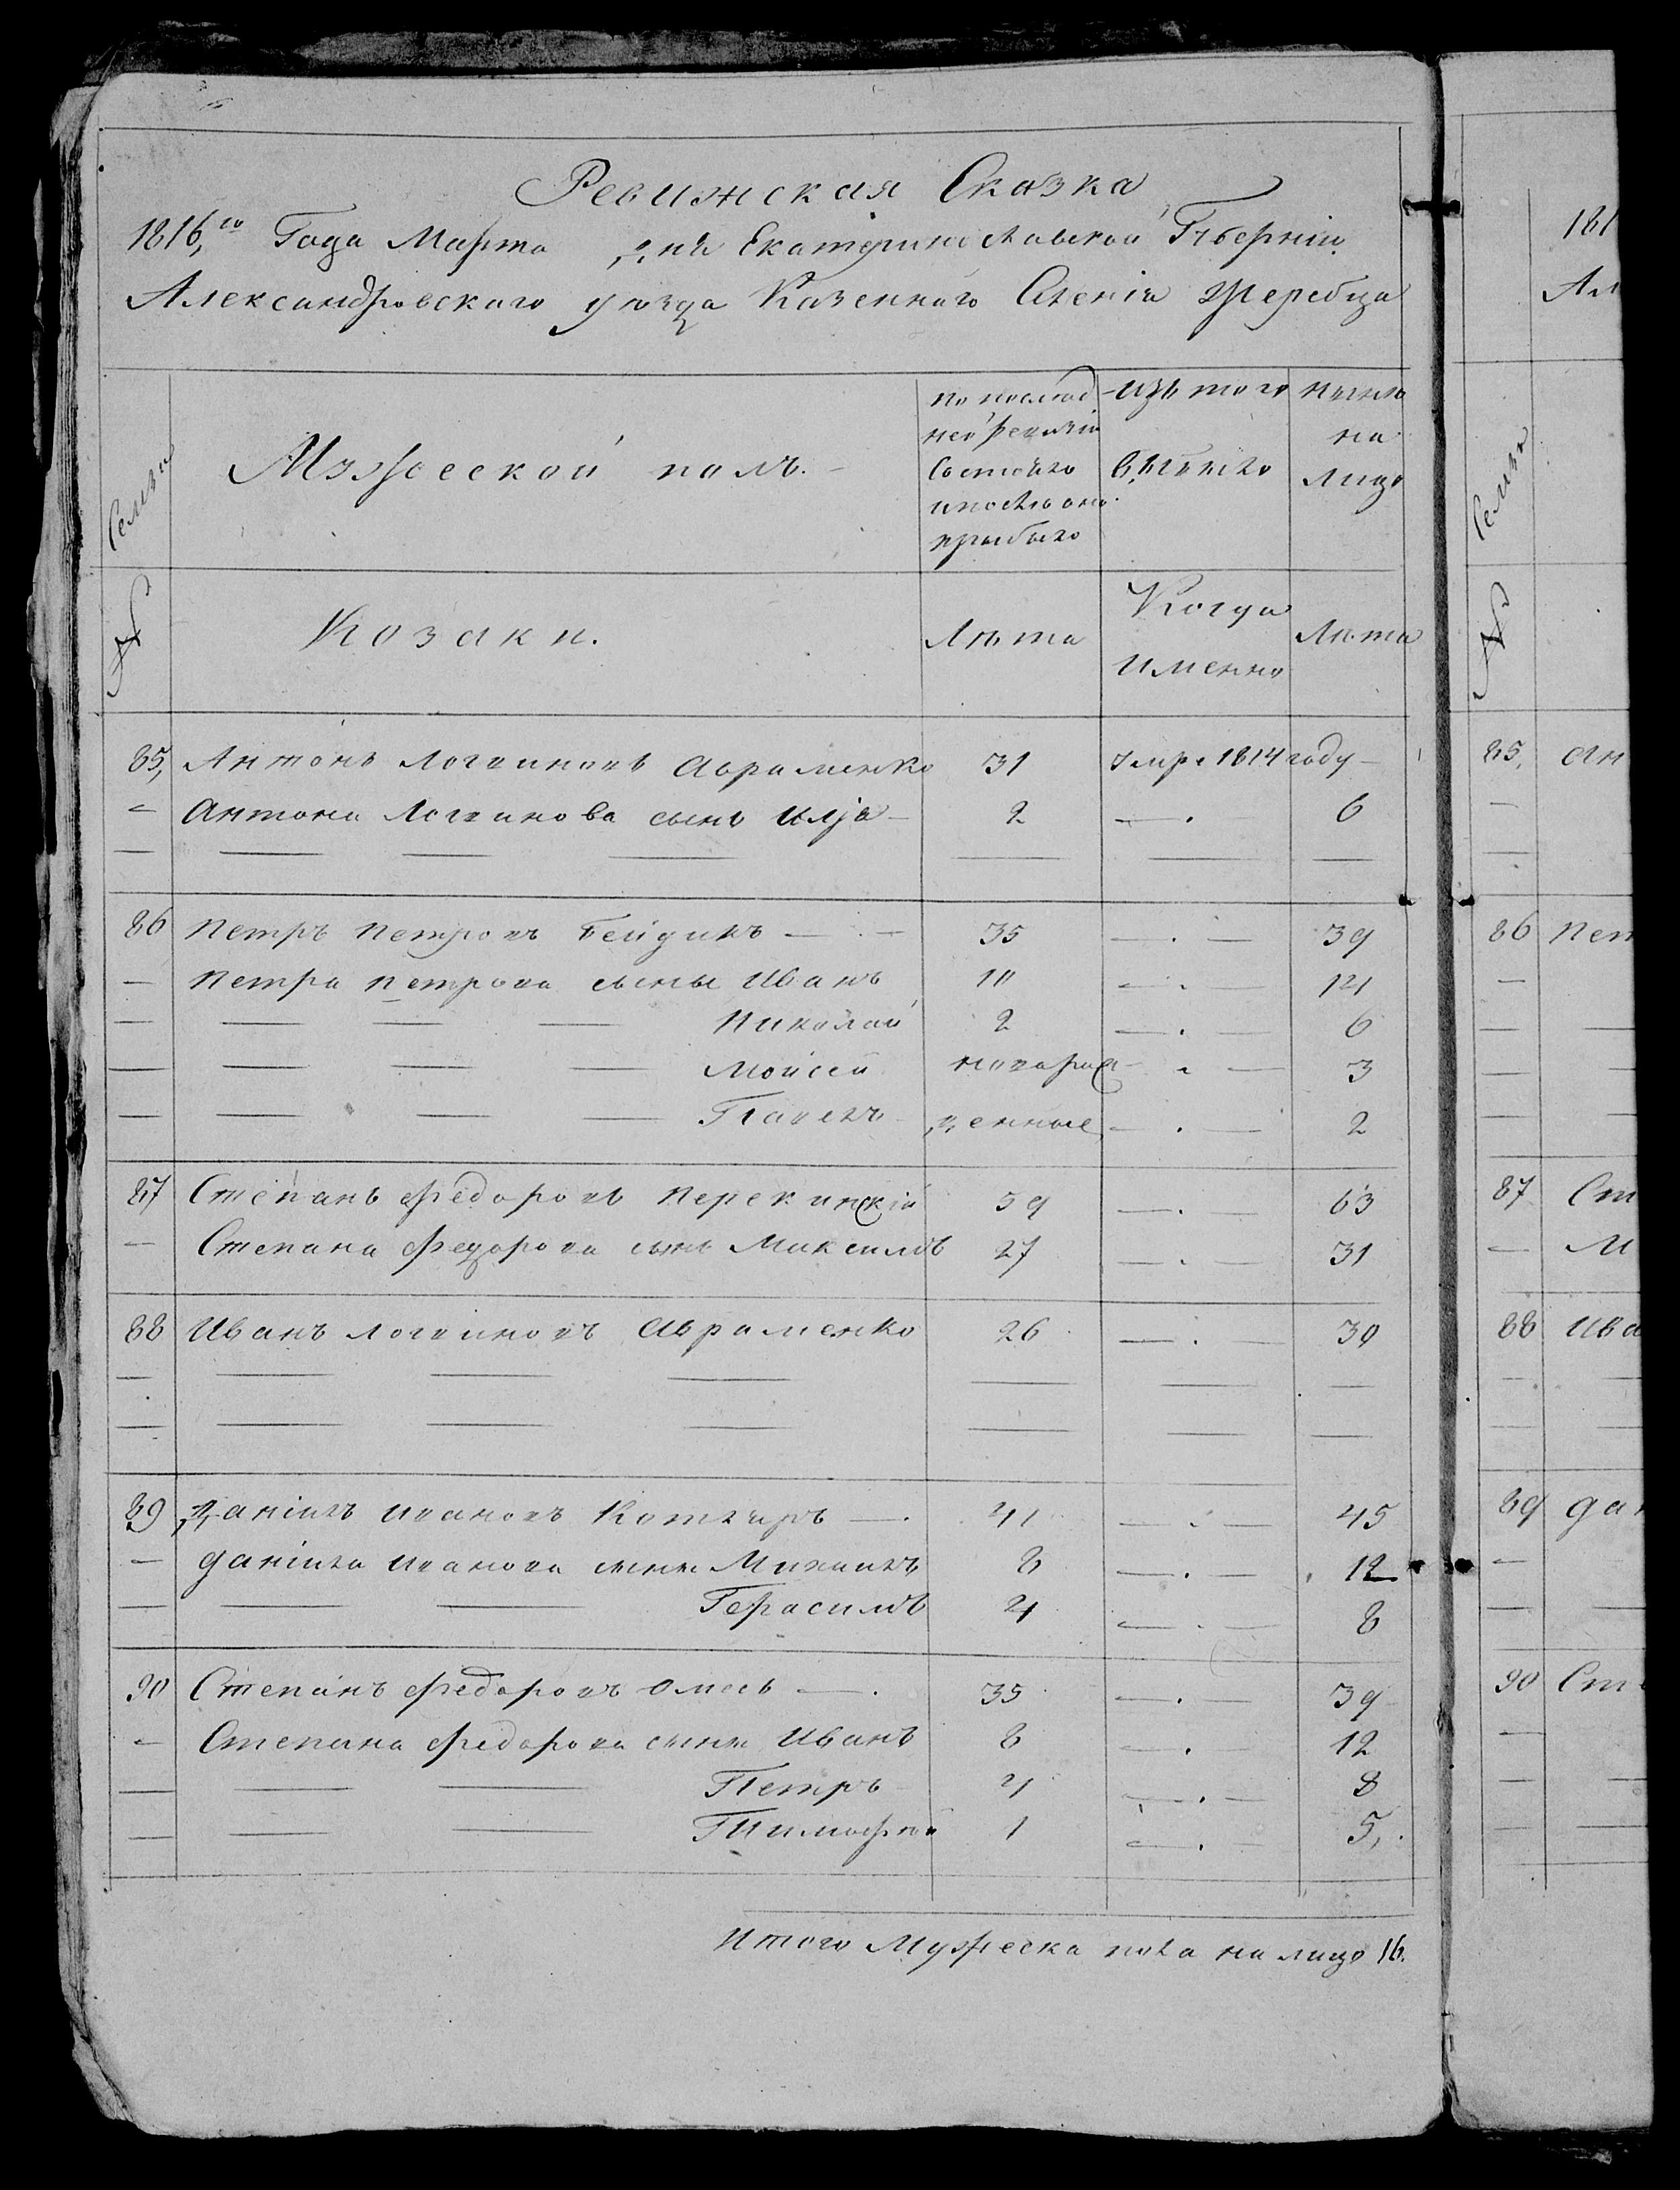 Ревижская Сказка
1816,го Года Марта дня Екатеринославской Губернiи
Александровского уезда Казенного Селенiя Жеребца
Семьи
Мужеской полъ.
по послед
ней ревизiи
Состояло
и после оной
прибыло
Изъ того
выбыло
Ныне
на
лицо
№
Козаки.
Лѣта
Когда
Именно
Лѣта
85, Антонъ Логвиновъ Авраменко 31 умре 1814 году —
— Антона Логвинова сынъ Илja — 2 — . 6
— — — — — — —
86 Петръ Петровъ Бейдикъ — . — 35 — . — 39
— Петра Петрова сыны Иванъ 10 — . — 14
— — — — Николай 2 — . — 6
— — — — Мойсей новорож — . — 3
— — — — Павелъ денные — . — 2
87 Степанъ Федоровъ 59 — . — 63
— Степана Федорова сынъ Максимъ 27 — . — 31
88 Иванъ Логвиновъ Авраменко 26 — . — 30
— — — — — — —
— — — — — — —
89 Данiилъ Ивановъ Котляръ — . 41 — . — 45
— Данiила Иванова сыны Михаилъ 8 — . — 12
— — — Герасимъ 4 — . — 8
90 Степанъ Федоровъ Омесь — . 35 — . — 39
— Степана Федорова сыны Иванъ 8 — . — 12
— — — Петръ 4 — . — 8
— — — Тимофей 1 — . — 5,
Итого Мужеска пола на лицо 16.
181
Ал
Семьи
№
85, Ан
—
—
86 Пет
—
—
—
—
87 Ст
— М
88 Ива
—
—
89 Дан
—
—
90 Сте
—
—
—